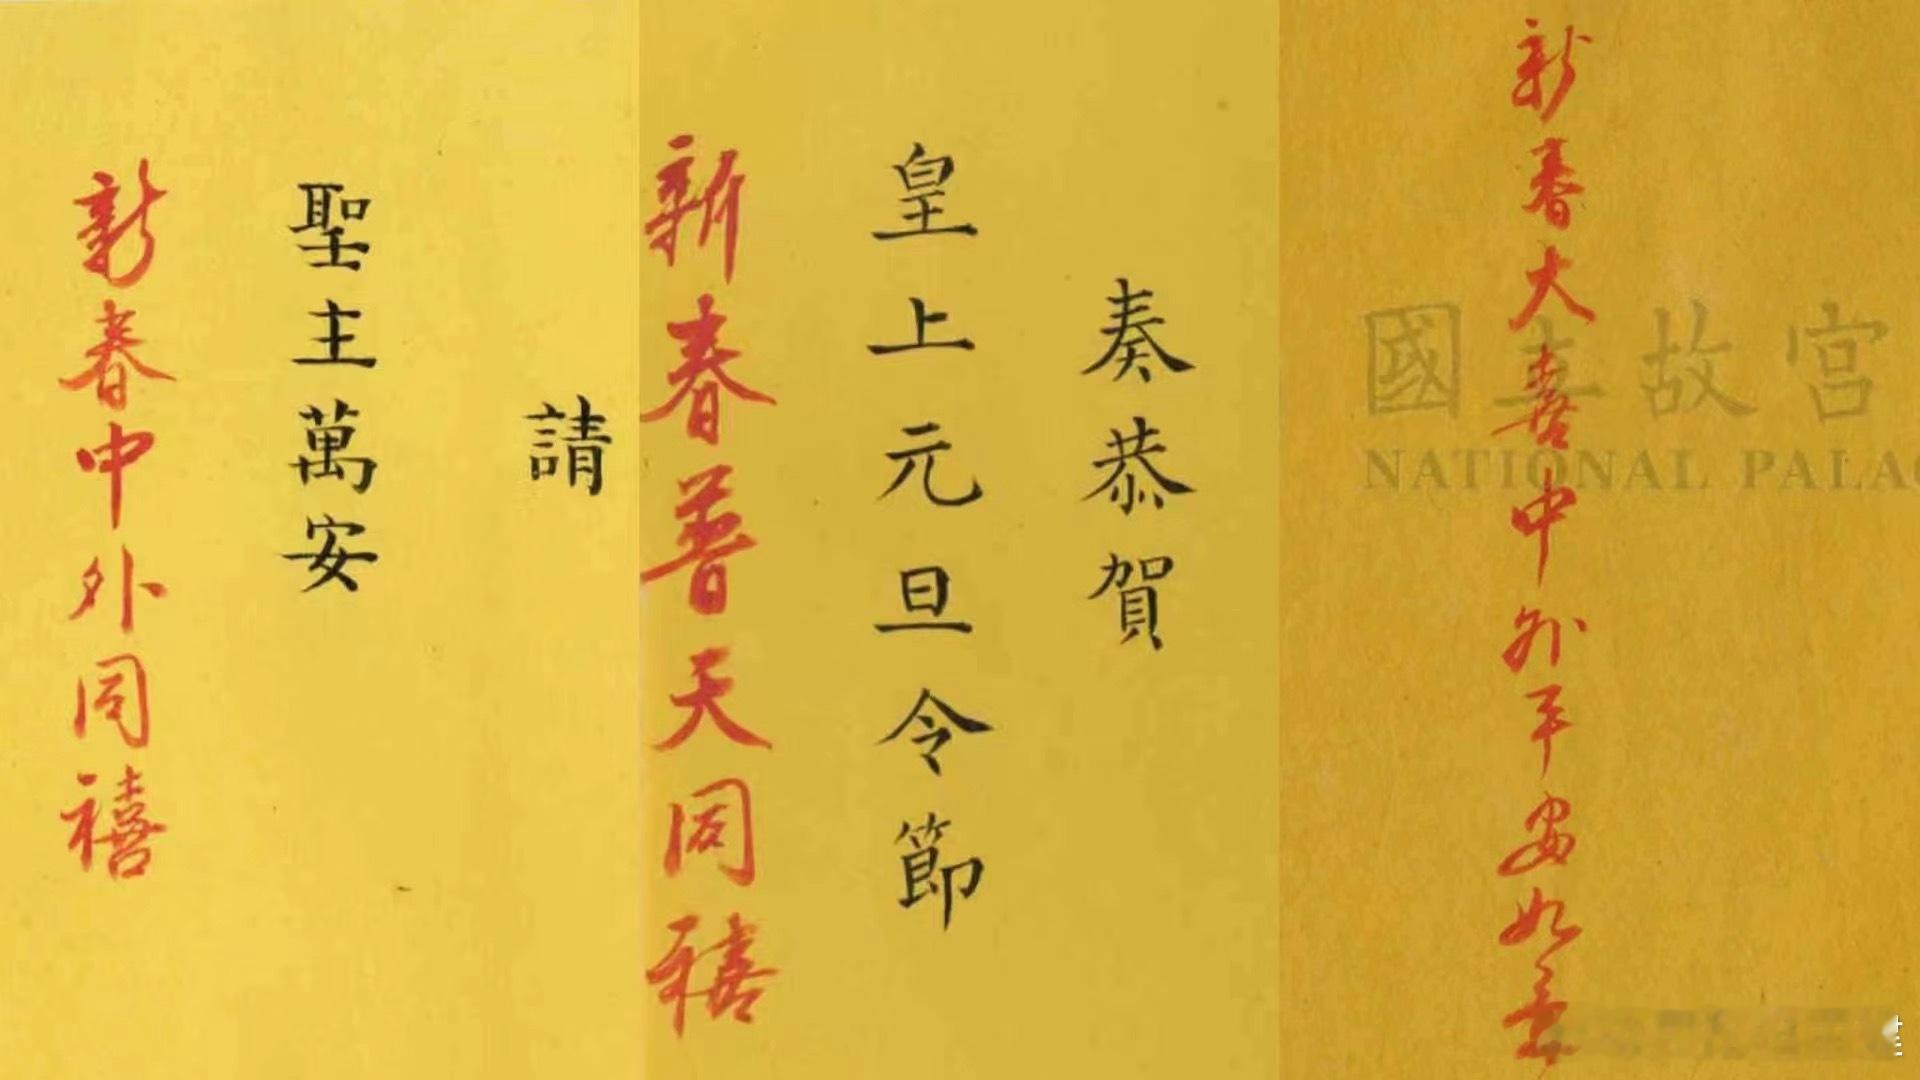 請
聖主萬安
新春中外同禧
奏恭賀
皇上元旦令節
新春普天同禧
新春大喜中外平安如意
國立故宮
NATIONAL PALAC